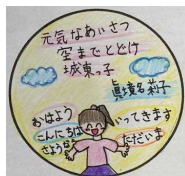 元気なあいさつ
空までとどけ
城東っ子
眞境名莉子
おはよう
こんにちは
さようなら
いってきます
ただいま